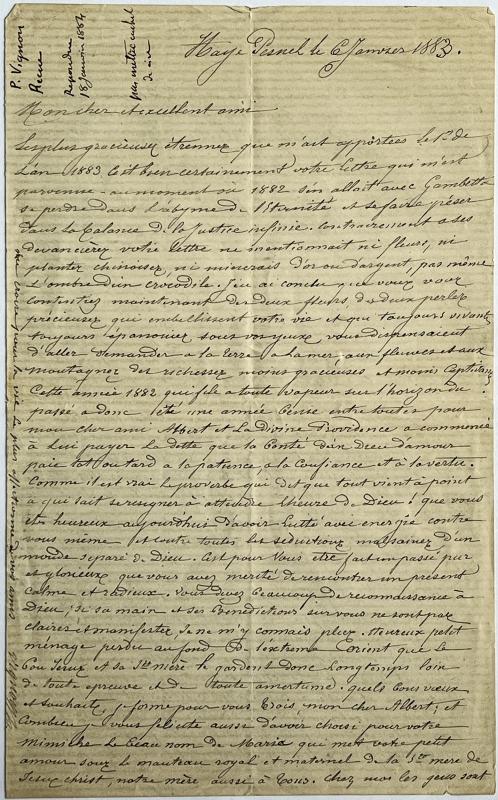 P. Vignon
Reçue
repondue
18 Janvier 1884
Haye Pesnel le 6 Janvier 1883.
Mon cher et excellent ami
Les plus gracieuses étrennes que m'ait apportées le 1er de
L'an 1883 C'est bien certainement votre lettre qui m'est
parvenue au moment où 1882 s'en allait avec Gambetta
se perdre dans l'abyme de l'éternité et se faire peser
dans la balance de la justice infinie. Contrairement à ses
devancières votre lettre ne mentionnait ni fleurs, ni
plantes chinoises, ni minerais d'or ou d'argent, pas même
L'ombre d'un crocodile. J'en ai conclu que vous vous
contentiez maintenant des deux fleurs, des deux perles
précieuses qui embellissent votre vie et qui toujours vivantes
toujours épanouies sous vos yeux vous dispensaient
d'aller demander à la terre à la mer, aux fleuves et aux
montagnes des richesses moins gracieuses et moins
Cette année 1882 qui file à toute vapeur sur l'horizon du
passé a donc été une année bénie entre toutes pour
mon cher ami Albert et La Divine Providence a commencé
à lui payer la dette que la Bonté d'un Dieu d'amour
paie tôt ou tard à la patience, à la Confiance et à la vertu.
Comme il est vrai le proverbe qui dit que tout vient à point
à qui sait se resigner à attendre l'heure de Dieu ! que vous
êtes heureux aujourd'hui d'avoir lutté avec énergie contre
vous même et contre toutes les séductions malsaines d'un
monde séparé de Dieu. C'est pour vous être fait un passé pur
et glorieux que vous avez mérité de rencontrer un présent
calme et radieux. Vous devez beaucoup de reconnaissance à
Dieu, si sa main et ses Benedictions sur vous ne sont pas
claires et manifestes, je ne m'y connais plus. Heureux petit
ménage perdu au fond de l'extrême Orient que le
Bon Jésus et sa Ste mère te gardent donc longtemps loin
de toute épreuve et de toute amertume. Quels bons vœux
et souhaits, je forme pour vous trois, mon cher Albert, et
Combien je vous félicite aussi d'avoir choisi pour votre
mimiche le beau nom de Maria qui met votre petit
amour sous le manteau royal et maternel de la Ste mère de
Jésus christ, notre mère aussi à tous. Chez moi les yeux sont